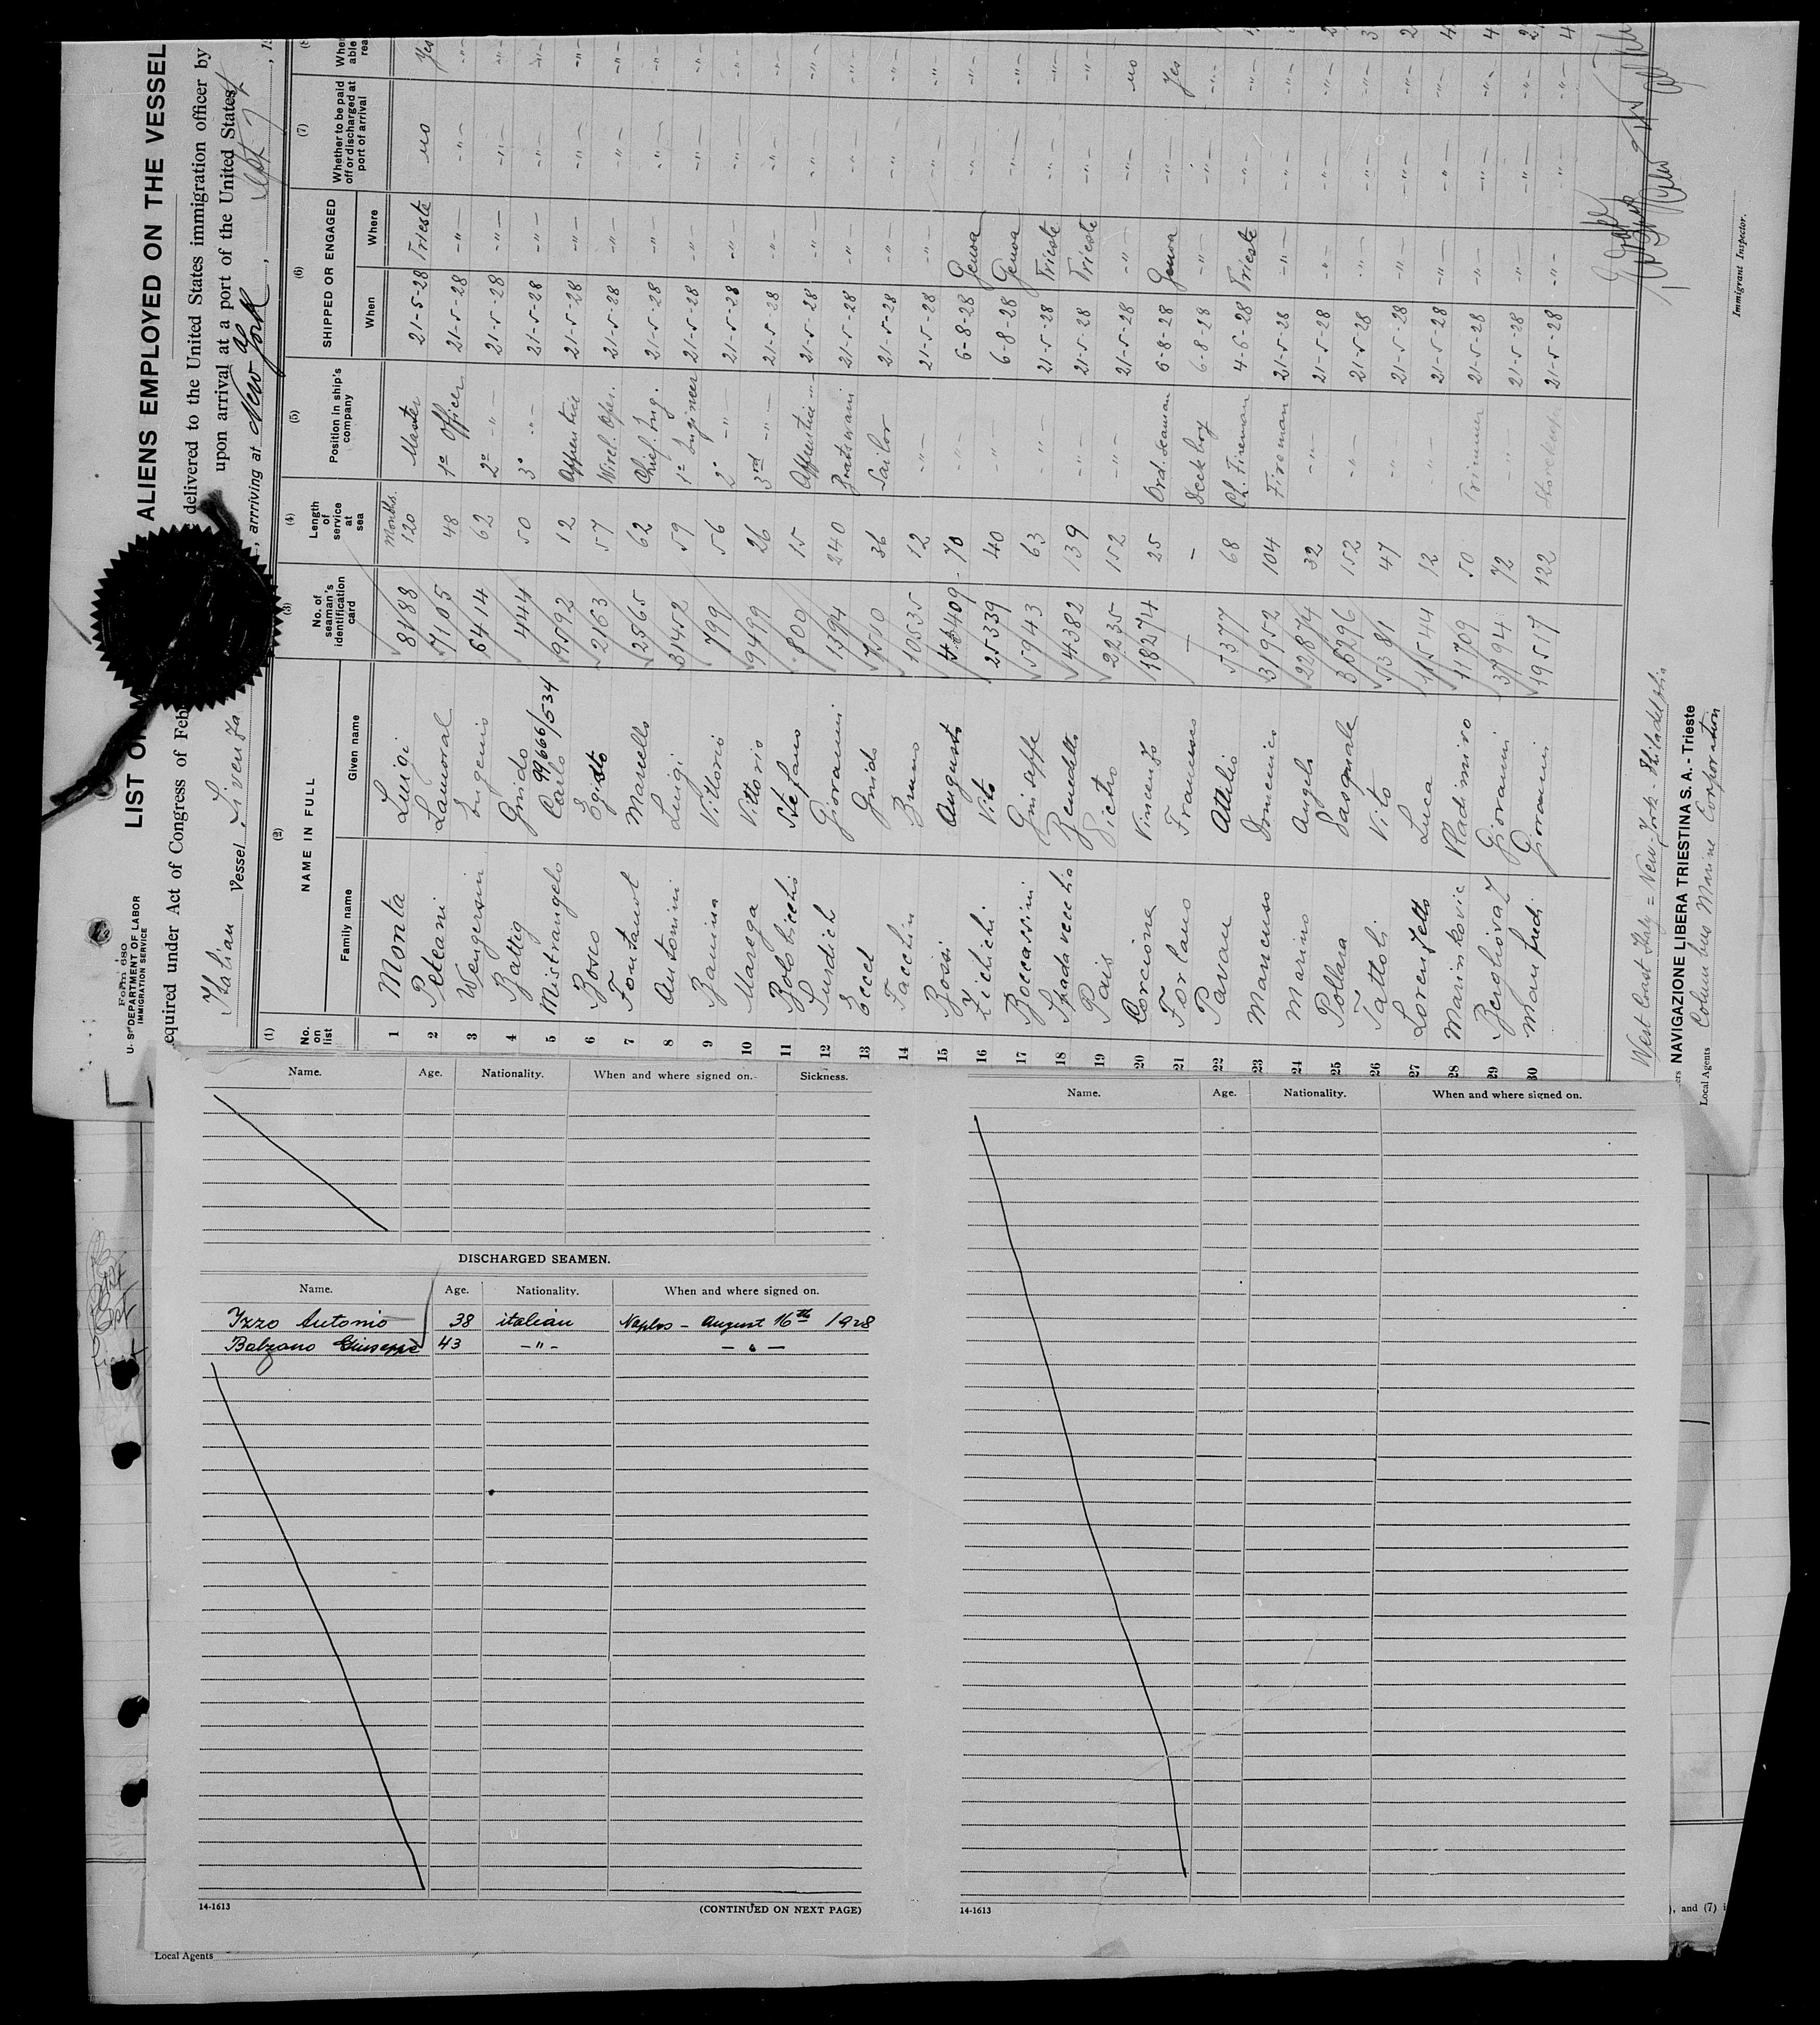 Form 680
U. S. DEPARTMENT OF LABOR
IMMIGRATION SERVICE
LIST OF ALIENS EMPLOYED ON THE VESSEL
equired under Act of Congress of Feb delivered to the United States immigration officer by
upon arrival at a port of the United States
Italian Vessel Livenza, arriving at New York, Sept 7th, 19
(1) (2) (3) (4) (5) (6) (7) (8
No. on list NAME IN FULL No. of seaman's identification card Length of service at sea Position in ship's company SHIPPED OR ENGAGED Whether to be paid off or discharged at port of arrival Whe able rea
Family name Given name When Where
Months.
1 Monta Luigi 8188 120 Master 21-5-28 Trieste no Yes
2 Peteani Lamoral 7105 48 1° Officer 21-5-28 -"- -"- -"-
3 Wengersin Eugenio 6414 62 2° -"- 21-5-28 -"- -"- -"-
4 Battig Guido 444 50 3° -"- 21-5-28 -"- -"- -"-
99666/534
5 Mistrangelo Carlo 9592 12 Apprentice 21-5-28 -"- -"- -"-
6 Bosco Egisto 2163 57 Wirel. Oper. 21-5-28 -"- -"- -"-
7 Fontanot Marcello 2565 62 Chief. Ing. 21-5-28 -"- -"- -"-
8 Antonini Luigi 31452 59 1° Ingineer 21-5-28 -"- -"- -"-
9 Zanina Vittorio 799 56 2° -"- 21-5-28 -"- -"- -"-
10 Marega Vittorio 9499 26 3rd -"- 21-5-28 -"- -"- -"-
11 Bolobicchi Stefano 800 15 Apprentice -"- 21-5-28 -"- -"- -"-
12 Surdich Giovanni 1394 240 Boatswain 21-5-28 -"- -"- -"-
13 Eccel Guido 7550 36 Sailor 21-5-28 -"- -"- -"-
14 Facchin Bruno 10535 12 -"- 21-5-28 -"- -"- -"-
15 Bossi Augusto 409 70 -"- 6-8-28 Genoa -"- -"-
16 Zichichi Vito 25339 40 -"- 6-8-28 Genoa -"- -"-
17 Boccassini Giuseppe 5943 63 " 21-5-28 Trieste -"- -"-
18 Spadavecchia Benedetto 4382 139 -"- 21-5-28 Trieste -"- -"-
19 Pais Pietro 2235 152 -"- 21-5-28 -"- -"- no
20 Corcione Vincenzo 18274 25 Ord. Seaman 6-8-28 Genoa -"- Yes
21 Forlano Francesco - - Deckboy 6-8-28 -"- -"- -"-
22 Pavan Attilio 5377 68 Ch. Fireman 4-6-28 Trieste -"- -"-
23 Mancuso Domenico 31952 104 Fireman 21-5-28 -"- -"- -"-
24 Marino Angelo 22874 32 -"- 21-5-28 -"- -"- -"-
25 Pollara Pasquale 36296 152 -"- 21-5-28 -"- -"- -"-
26 Tattoli Vito 5381 47 -"- 21-5-28 -"- -"- -"-
27 Lorenzetto Luca 11544 12 -"- 21-5-28 -"- -"- -"-
28 Marinkovic Vladimiro 11709 50 Trimmer 21-5-28 -"- -"- -"-
29 Giovanni 37941 72 -"- 21-5-28 -"- -"- -"-
30 Manfredi Giovanni 19517 122 Storekeeper 21-5-28 -"- -"- -"-
West Coast Italy = New-York - Philadelphia
ers NAVIGAZIONE LIBERA TRIESTINA S. A. - Trieste
Local Agents Columbus Marine Corporation
Immigrant Inspector.
Name. Age. Nationality. When and where signed on. Sickness.
DISCHARGED SEAMEN.
Name. Age. Nationality. When and where signed on.
Izzo Antonio 38 italian Naples - August 16th 1928
Balzano Giuseppe 43 -"- -"-
14-1613
(CONTINUED ON NEXT PAGE)
Name. Age. Nationality. When and where signed on.
14-1613
), and (7) i
Local Agents